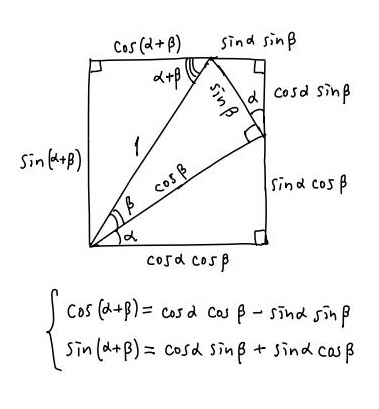 cos(α+β) sinα sinβ
α+β
sinβ
α
cosα sinβ
1
sin(α+β)
cosβ
sinα cosβ
β
α
cosα cosβ
cos(α+β) = cosα cosβ - sinα sinβ
sin(α+β) = cosα sinβ + sinα cosβ